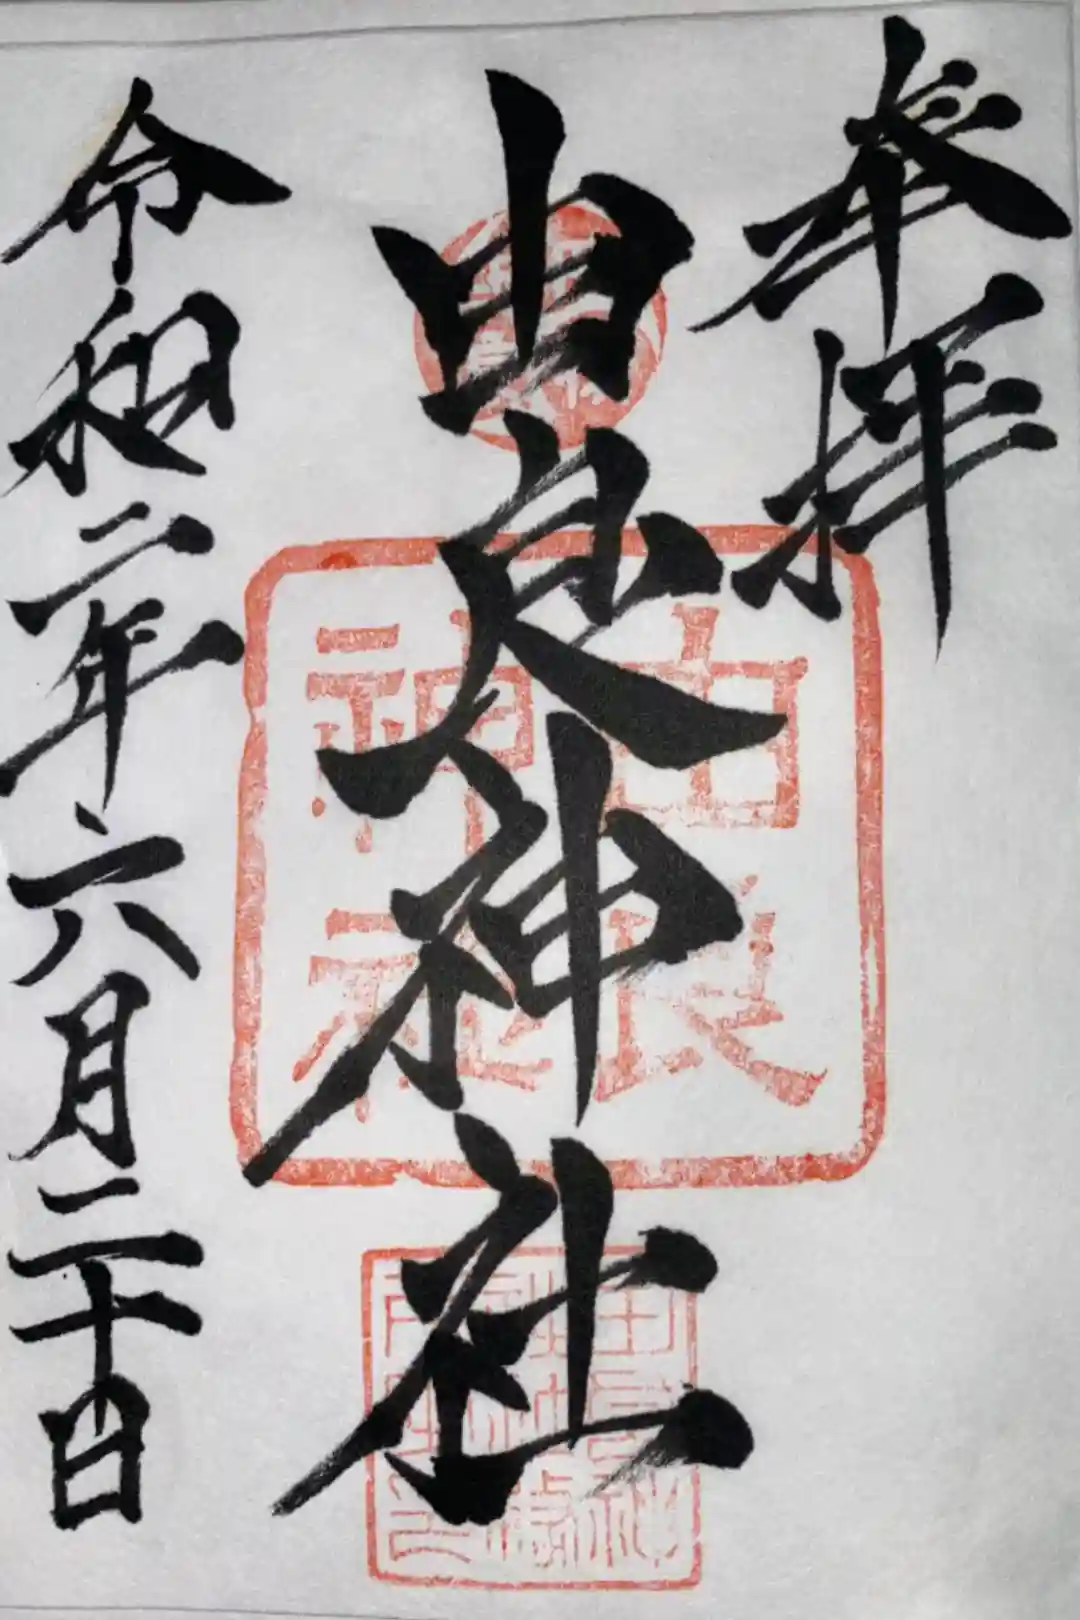 奉拝
由良神社
由良
神社
令和二年六月二十日